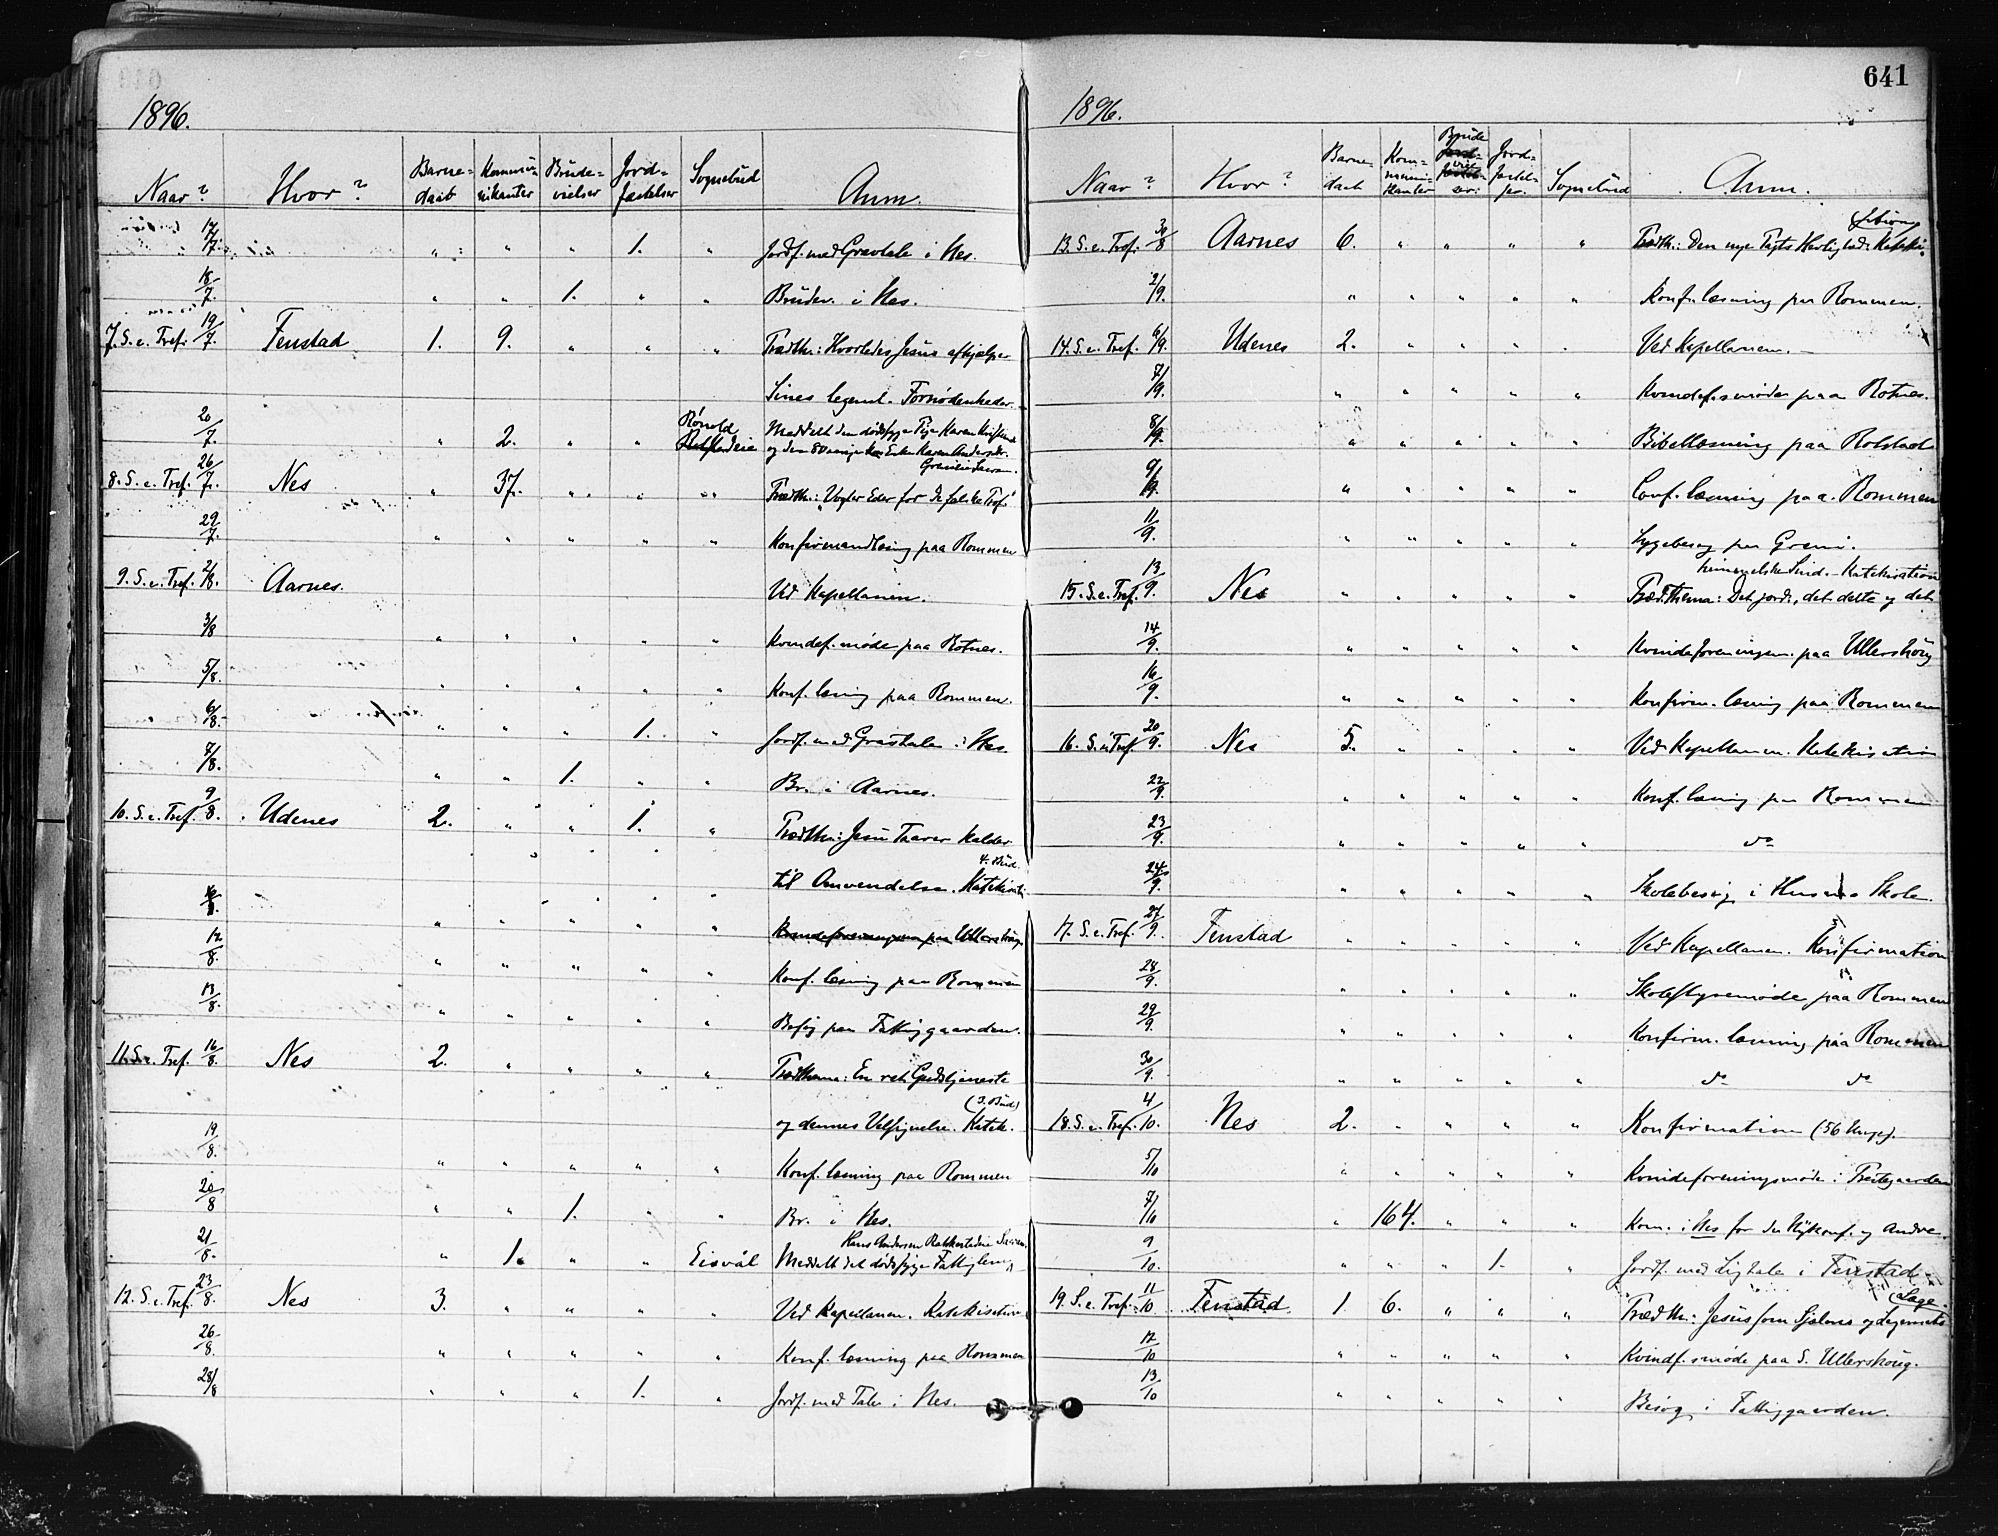 1896.
Naar? Hvor? Barne-daab Kommunikanter Brude-vielser Jord-fæstelser Sognebud Anm.
17/7. " " " 1. " Jordf. med Gravtale i Nes.
18/7. " " 1. " " Brudev. i Nes.
7. S. e. Tref. 19/7. Fenstad 1. 9. " " " Prædth.: Hvorledes Jesus afhjælper
Sines legeml. Fornødenheder.
20/7. " 2. " " Rønold Meddelt den dødssyge Pige Karen
og den 80 aarige Enke Karen
8. S. e. Tref. 26/7. Nes " 37. " " " Prædth.: Vogter Eder for de falske Prof.
29/7. " " " " " Konfirmandlæsning paa Rommen
9. S. e. Tref. 2/8. Aarnes. Ved Kapellanen.
3/8 " " " " " Kvindef.møde paa Botnes.
5/8. " " " " " Konf. læsning paa Rommen.
6/8. " " " 1. " Jordf. med Gravtale i Nes.
8/8. " " 1. " " Br. i Aarnes.
10. S. e. Tref. 9/8. Udenes 2. " " 1. " Prædth.: Jesu Taarer kalder
til Anvendelse. 4. Bud. Katekisati.
Kvindeforeningen paa Ullershoug.
12/8. " " " " " Konf. læsning paa Rommen
13/8. " " " " " Besøg paa Fattiggaarden.
11. S. e. Tref. 16/8. Nes 2. " " " " Prædthema: En ret Gudstjeneste
og dennes Velsignelse. (3. Bud) Katek.
19/8. " " " " " Konf. læsning paa Rommen
20/8 " " 1. " " Br. i Nes.
21/8. " 1. " " Eisvål Meddelt det dødssyge Fattiglem Hans Andersen
12. S. e. Tref. 23/8. Nes 3. " " " " Ved Kapellanen. Katekisation
26/8. " " " " " Konf. læsning paa Rommen
28/8 " " " 1. " Jordf. med Tale i Nes.
641
1896.
Naar? Hvor? Barne-daab Kom-muni-kanter Brude viel-ser: Jord-fæstel-ser. Sognebud Anm.
13. S. e. Tref. 30/8 Aarnes 6. " " " " Prædth.: Den nye Pagts Herlighed.
2/9. " " " " " Konf. læsning paa Rommen.
14. S. e. Tref. 6/9. Udenes 2. " " " " Ved Kapellanen.
7/9. " " " " " Kvindef.smøde paa Botnes.
8/9. " " " " " Bibellæsning paa Rolstad
9/9. " " " " " Conf. læsning paa Rommen
11/9. " " " " " Sygebesøg paa Greni.
15. S. e. Tref. 13/9. Nes " " " " " Præd.thema: Det jord., det delte og det
himmelske Sind. – Katekisation
14/9. " " " " " Kvindeforeningen paa Ullershoug
16/9. " " " " " Konfirm. læsning paa Rommen
16. S. e. Tref. 20/9. Nes 5. " " " " Ved Kapellanen. Katekisation
22/9. " " " " " Konf. læsning paa Rommen
23/9. " " " " " do
24/9. " " " " " Skolebesøg i Husmo Skole.
17. S. e. Tref. 27/9. Fenstad " " " " " Ved Kapellanen. Konfirmation
28/9. " " " " " Skolestyremøde paa Rommen
29/9. " " " " " Konfirm. læsning paa Rommen
30/9. " " " " " do do
18. S. e. Tref. 4/10. Nes 2. " " " " Konfirmation (56 Unge).
5/10 " " " " " Kvindeforeningsmøde i Prestegaarden
7/10 " 164. " " " Kom. i Nes for de Nykonf. og Andre.
9/10. " " " 1. " Jordf. med Ligtale i Fenstad
19. S. e. Tref. 11/10 Fenstad 1. 6. " " " Prædth.: Jesus som Sjælens og Legemets
Læge.
12/10 " " " " " Kvindf.smøde paa S. Ullershoug.
13/10 " " " " " Besøg i Fattiggaarden.